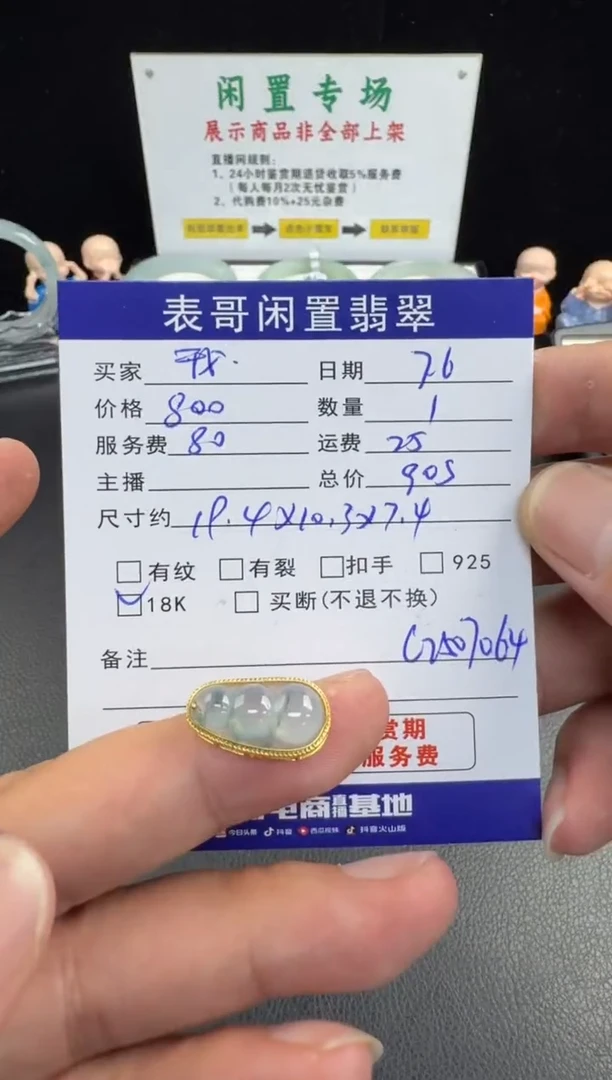 闲置专场
展示商品非全部上架
直播间规则：
1、24小时鉴赏期退货收取5%服务费
（每人每月2次无忧鉴赏）
2、代购费10%+25元杂费
表哥闲置翡翠
买家 日期 7.6
价格 800 数量 1
服务费 80 运费 25
主播 总价 905
尺寸约 19.4X10.3X7.4
□有纹 □有裂 □扣手 □925
□18K □买断(不退不换)
备注
赏期
服务费
电商直播基地
今日头条 抖音 西瓜视频 抖音火山版